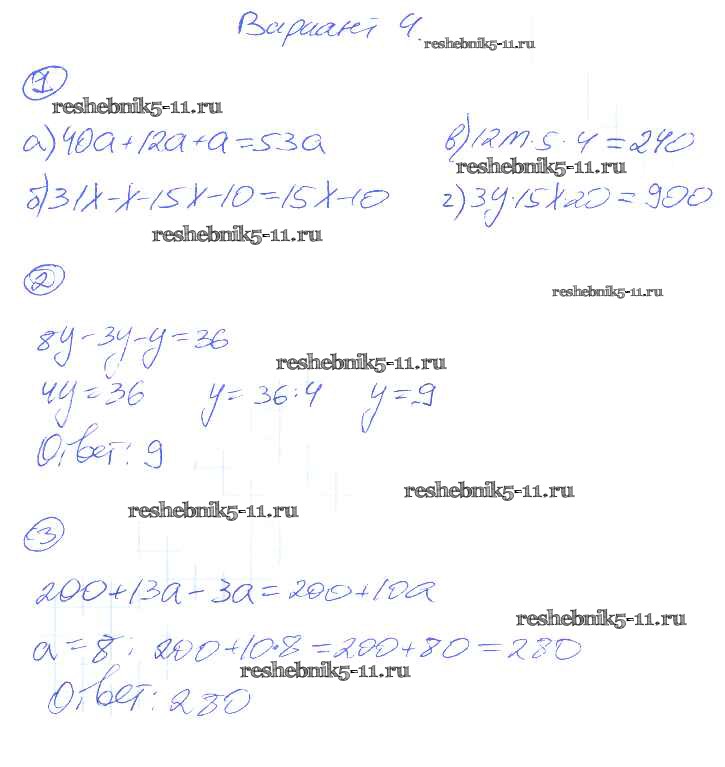 Вариант 4.
reshebnik5-11.ru
1
reshebnik5-11.ru
а) 40a+12a+a=53a
в) 12m·5·4=240
reshebnik5-11.ru
б) 31x-x-15x-10=15x-10
г) 3y·15x20=900
reshebnik5-11.ru
2
reshebnik5-11.ru
8y-3y-y=36
reshebnik5-11.ru
4y=36 y=36:4 y=9
Ответ: 9
reshebnik5-11.ru
reshebnik5-11.ru
3
200+13a-3a=200+10a
reshebnik5-11.ru
a=8; 200+10·8=200+80=280
reshebnik5-11.ru
Ответ: 280